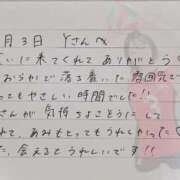 月3日 Yさんへ
いに来てくれてありがとう
おらかで落ち着いた雰囲気で
ってもやさしい時間でした!!
さんが気持ちよさそうにして
れて、あみもとってもうれしかった
た、会えるとうれしいです!!